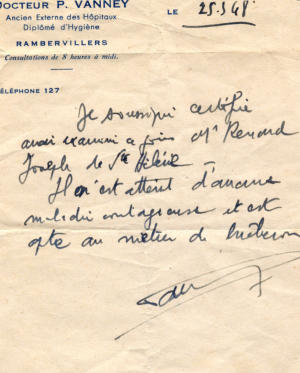 DOCTEUR P. VANNEY
Ancien Externe des Hôpitaux
Diplômé d'Hygiène
RAMBERVILLERS
Consultations de 8 heures à midi.
TÉLÉPHONE 127
LE 25.3.48
Je soussigné certifie
avoir examiné ce jour Mr Renard
Joseph de Ste Hélène
Il n'est atteint d'aucune
maladie contagieuse et est
apte au métier de bûcheron